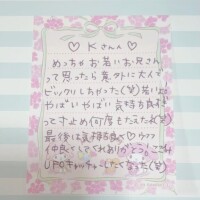 ♡Kさんへ♡
めっちゃお若いお兄さん
って思ったら意外に大人で
ビックリしちゃった(笑)
やばいやばい気持ち良すぎ
って寸止め何度もたえたね(笑)
最後は
仲良くしてくれありがとうございます
UFOキャッチャーしたくなった(笑)